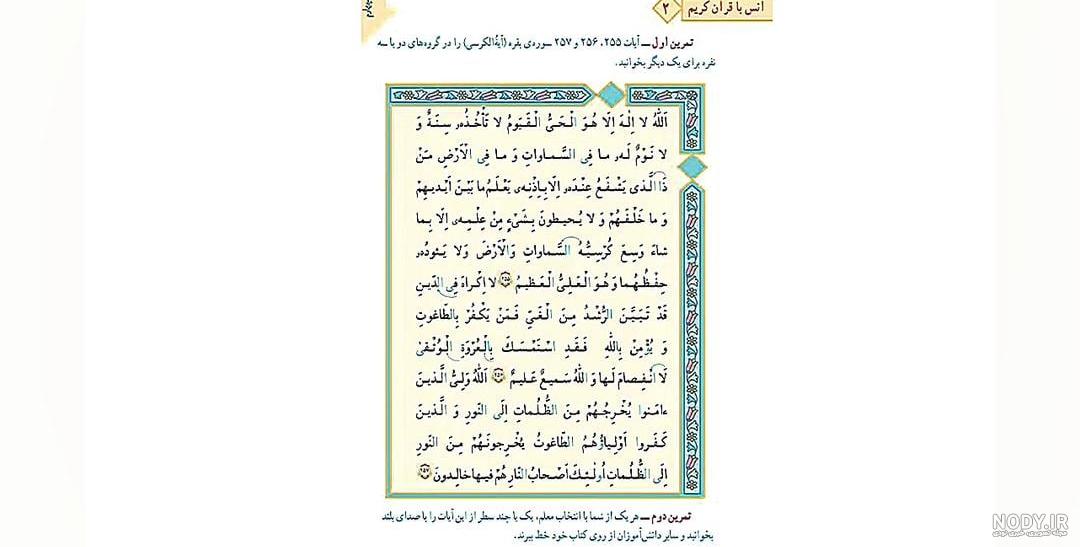 انس با قرآن کریم ٢
تمرین اول ــ آیات ٢٥٥، ٢٥٦ و ٢٥٧ سوره‌ی بقره (آیة‌الکرسی) را در گروه‌های دو یا سه
نفره برای یک دیگر بخوانید.
اَللّٰهُ لا اِلٰهَ اِلّا هُوَ الْحَیُّ الْقَیّومُ لا تَأْخُذُهُۥ سِنَةٌ وَ
لا نَوْمٌ لَهُۥ ما فِی السَّماواتِ وَ ما فِی الْاَرْضِ مَنْ
ذَا الَّذی یَشْفَعُ عِنْدَهُۥ اِلّا بِاِذْنِهٖ یَعْلَمُ ما بَیْنَ اَیْدیهِمْ
وَ ما خَلْفَهُمْ وَ لا یُحیطونَ بِشَیْءٍ مِنْ عِلْمِهٖ اِلّا بِما
شاءَ وَسِعَ کُرْسِیُّهُ السَّماواتِ وَالْاَرْضَ وَلا یَـٔودُهُۥ
حِفْظُهُما وَ هُوَ الْعَلِیُّ الْعَظیمُ ٢٥٥ لا اِکْراهَ فِی الدّینِ
قَدْ تَبَیَّنَ الرُّشْدُ مِنَ الْغَیِّ فَمَنْ یَکْفُرْ بِالطّاغوتِ
وَ یُؤْمِنْ بِاللّٰهِ فَقَدِ اسْتَمْسَكَ بِالْعُرْوَةِ الْوُثْقیٰ
لَا انْفِصامَ لَها وَ اللّٰهُ سَمیعٌ عَلیمٌ ٢٥٦ اَللّٰهُ وَلِیُّ الَّذینَ
ءامَنوا یُخْرِجُهُمْ مِنَ الظُّلُماتِ اِلَی النّورِ وَ الَّذینَ
کَفَروا اَوْلِیاؤُهُمُ الطّاغوتُ یُخْرِجونَهُمْ مِنَ النّورِ
اِلَی الظُّلُماتِ اُولٰئِكَ اَصْحابُ النّارِ هُمْ فیها خالِدونَ ٢٥٧
تمرین دوم ــ هر یک از شما با انتخاب معلم، یک یا چند سطر از این آیات را با صدای بلند
بخوانید و سایر دانش‌آموزان از روی کتاب خود خط ببرند.
NODY.IR